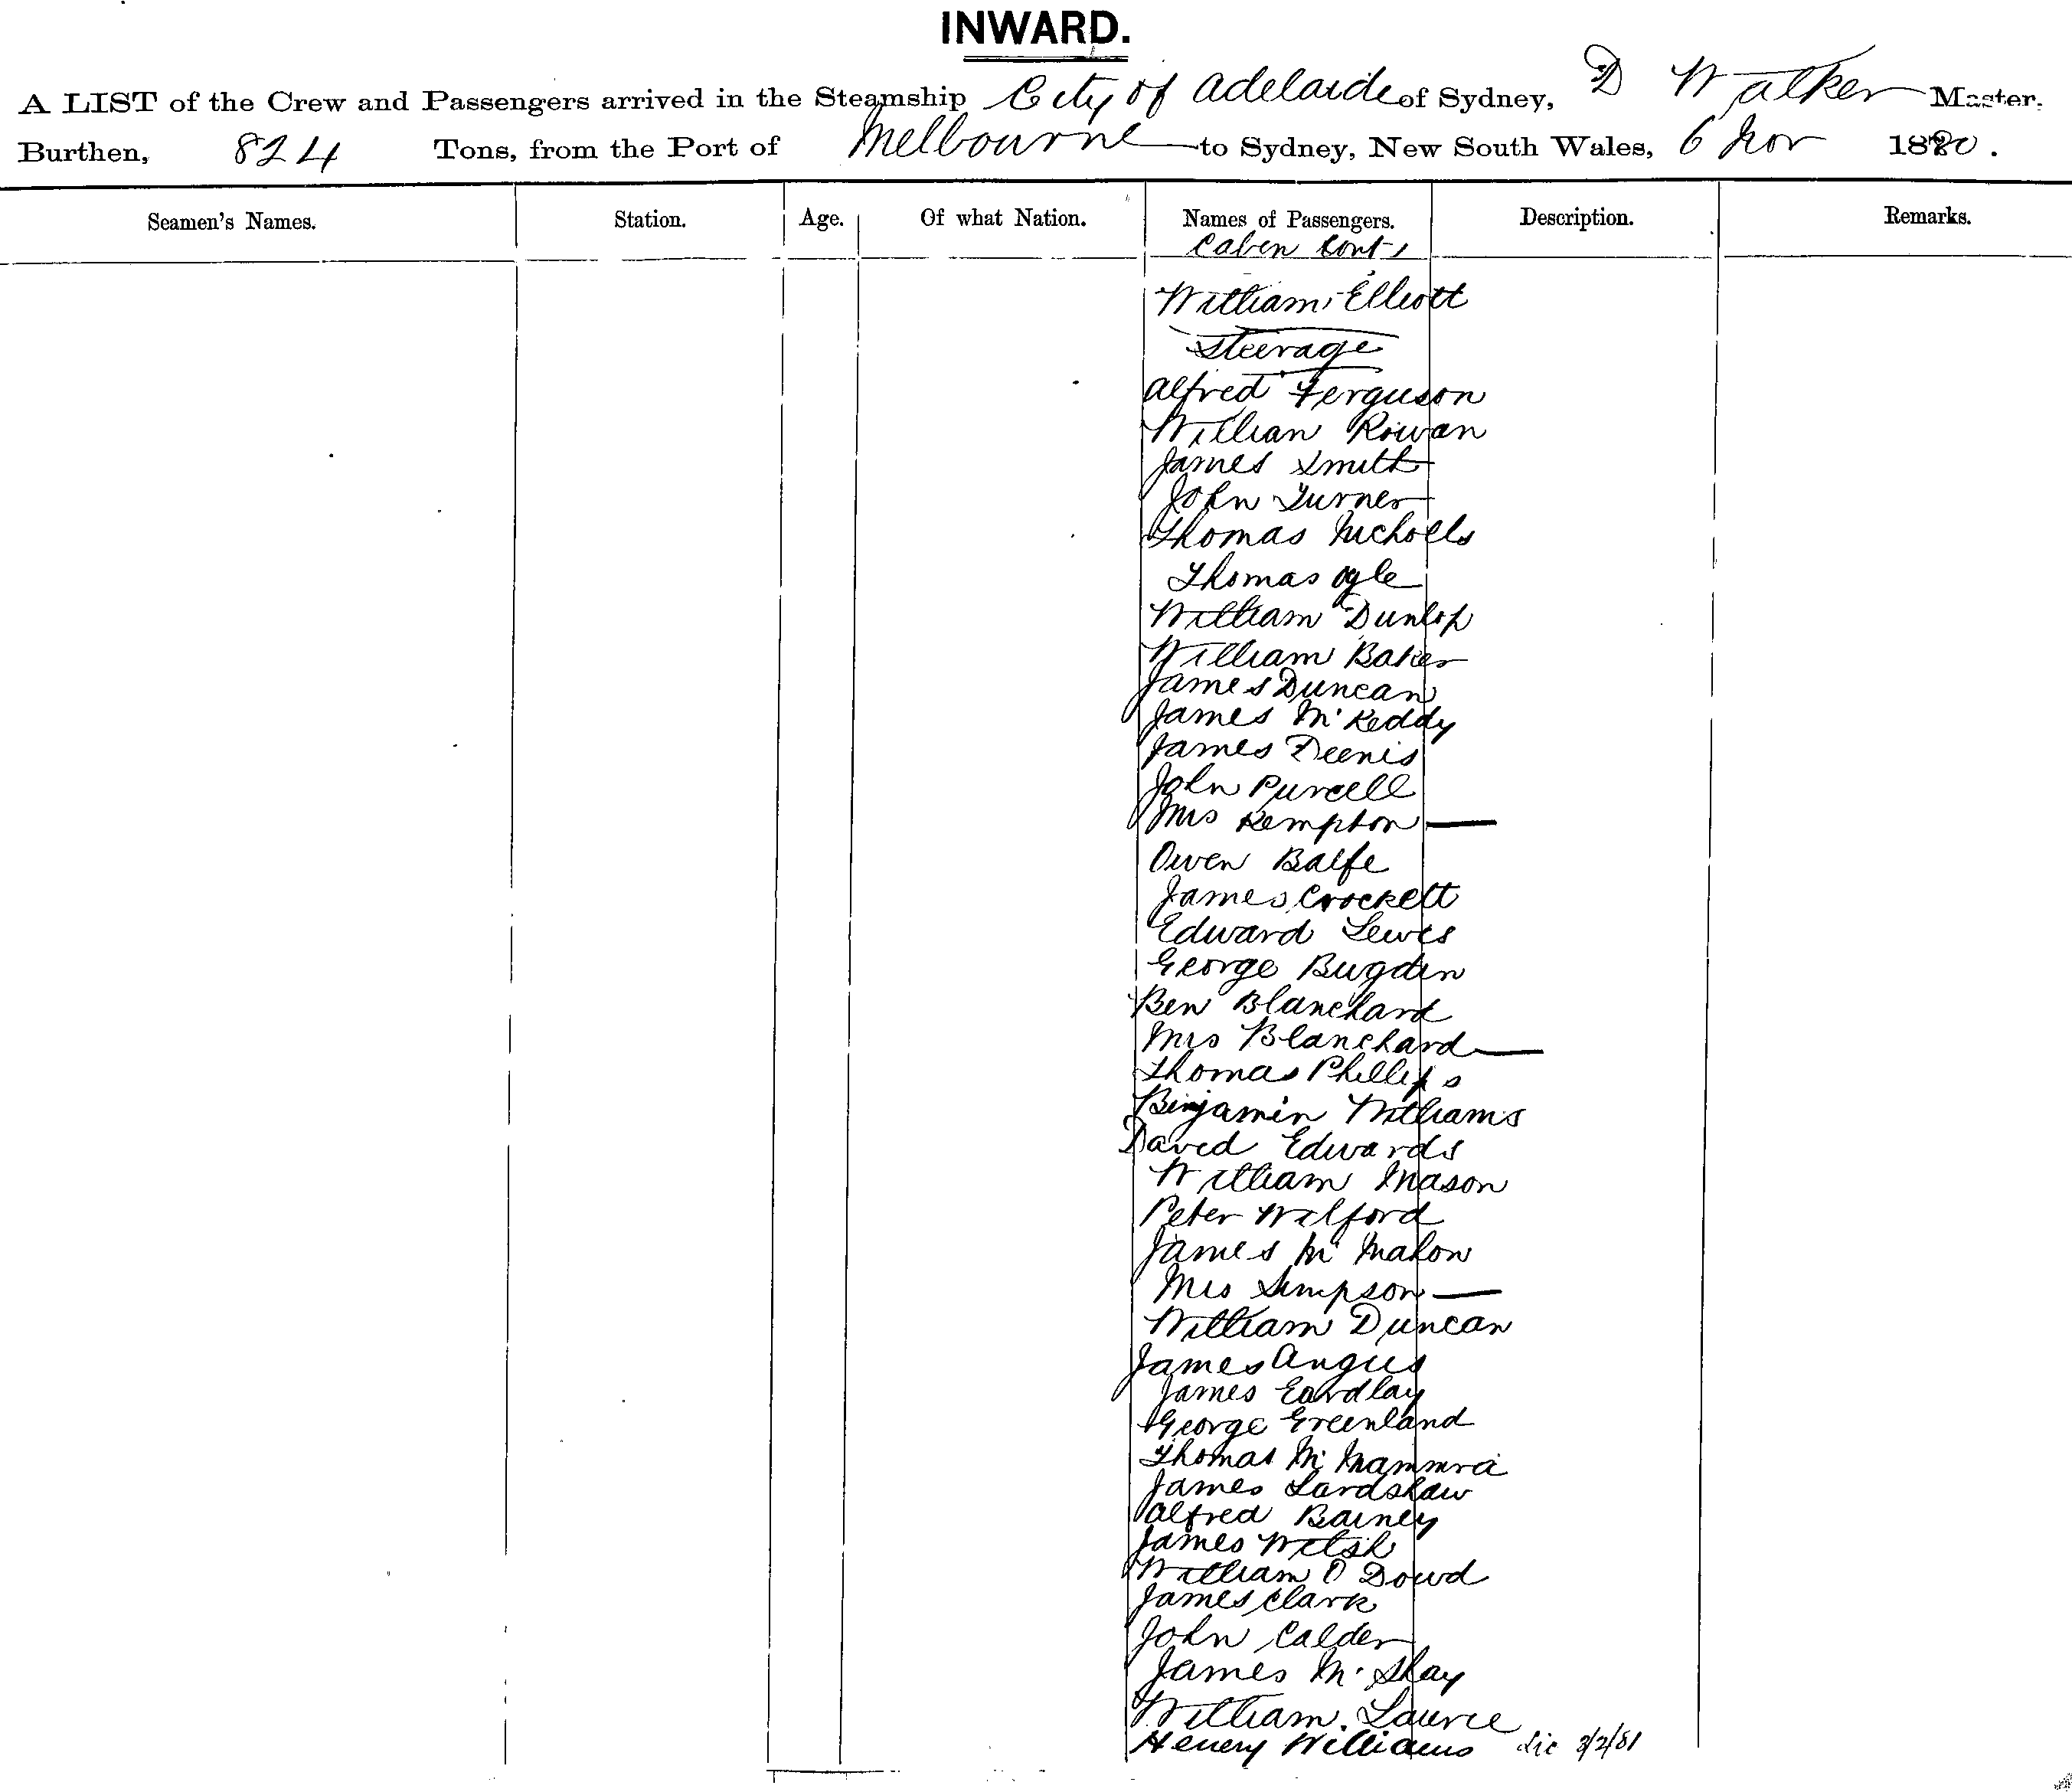 INWARD.
A LIST of the Crew and Passengers arrived in the Steamship City of Adelaide of Sydney, D Walker Master.
Burthen, 824 Tons, from the Port of Melbourne to Sydney, New South Wales, 6 Nov 1880.
Seamen's Names. Station. Age. Of what Nation. Names of Passengers. Description. Remarks.
Cabin Cont
William Elliott
Steerage
Alfred Ferguson
William Rowan
James Smith
John Turner
Thomas Nicholls
Thomas Ogle
William Dunlop
William Baker
James Duncan
James McKeddy
James Deenis
John Purcell
Mrs Kempton —
Owen Balfe
James Crockett
Edward Lewis
George Bugden
Ben Blanchard
Mrs Blanchard —
Thomas Phillips
Binjamin Williams
David Edwards
William Mason
Peter Wilford
James Mc Mahon
Mrs Simpson —
William Duncan
James Angus
James Eardlay
George Greenland
Thomas Mc
James Lardshaw
Alfred Barney
James Welsh
William O Dowd
James Clark
John Calder
James Mc Shay
William Laurie
Henery Williams 3/2/81